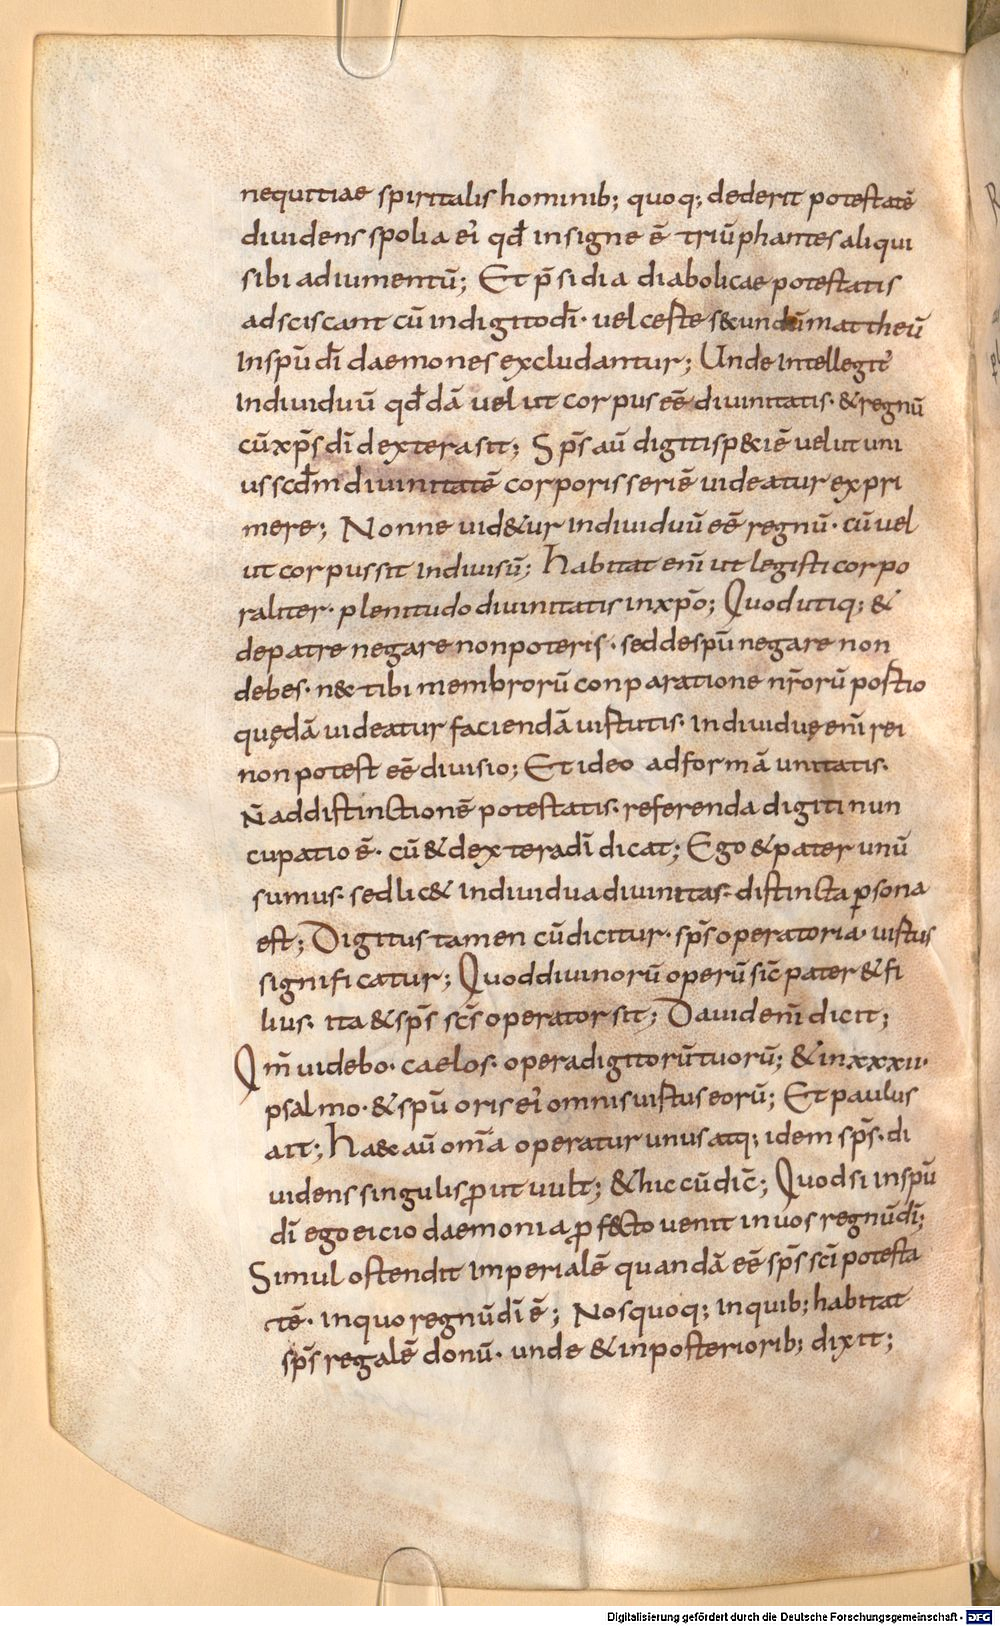 nequitiae spiritalis hominib; quoq; dederit potestatē
dividens spolia ei' qđ insigne ē triūphantes aliqui
sibi adiumentū; Et p̄sidia diabolicae potestatis
adsciscant cū in digito dī· vel ceste s&undū mattheū
In spū dī daemones excludantur; Unde intellegit'
Individuū qđdā velut corpus eē divinitatis· & regnū
cū xp̄s dī dextera sit; Sp̄s aū digiti sp&iē velut uni
us scđm divinitatē corporis seriē videatur expri
mere; Nonne vid&ur individuū eē regnū· cū vel
ut corpus sit indivisū; habitat enī ut legisti corpo
raliter· plenitudo divinitatis in xp̄o; Quod utiq; &
de patre negare non poteris· sed de spū negare non
debes· n& tibi membrorū conparatione nr̄orū postio
quędā videatur faciendā vistutis· individuę enī rei
non potest eē divisio; Et ideo ad formā unitatis·
N̄ ad distinctionē potestatis· referenda digiti nun
cupatio ē· cū & dextera dī dicat; Ego & pater unū
sumus· sed lic& individua divinitas· distincta ꝑsona
est; Digitus tamen cū dicitur· sp̄s operatoria· vistus
significatur; Quod divinorū operū sic̄ pater & fi
lius· ita & sp̄s sc̄s operator sit; David enī dicit;
Qm̄ videbo· caelos· opera digitorū tuorū; & in xxxii·
psalmo· & spū oris ei' omnis vistus eorū; Et paulus
ait; ha& aū om̄a operatur unus atq; idem sp̄s· di
videns singulis ꝓut vult; & hic cū dic̄; Quod si in spū
dī ego eicio daemonia ꝓf&to venit in vos regnū dī;
Simul ostendit imperialē quandā eē sp̄s sc̄i potesta
tē· in quo regnū dī ē; Nos quoq; in quib; habitat
sp̄s regalē donū· unde & in posteriorib; dixit;
Digitalisierung gefördert durch die Deutsche Forschungsgemeinschaft - DFG